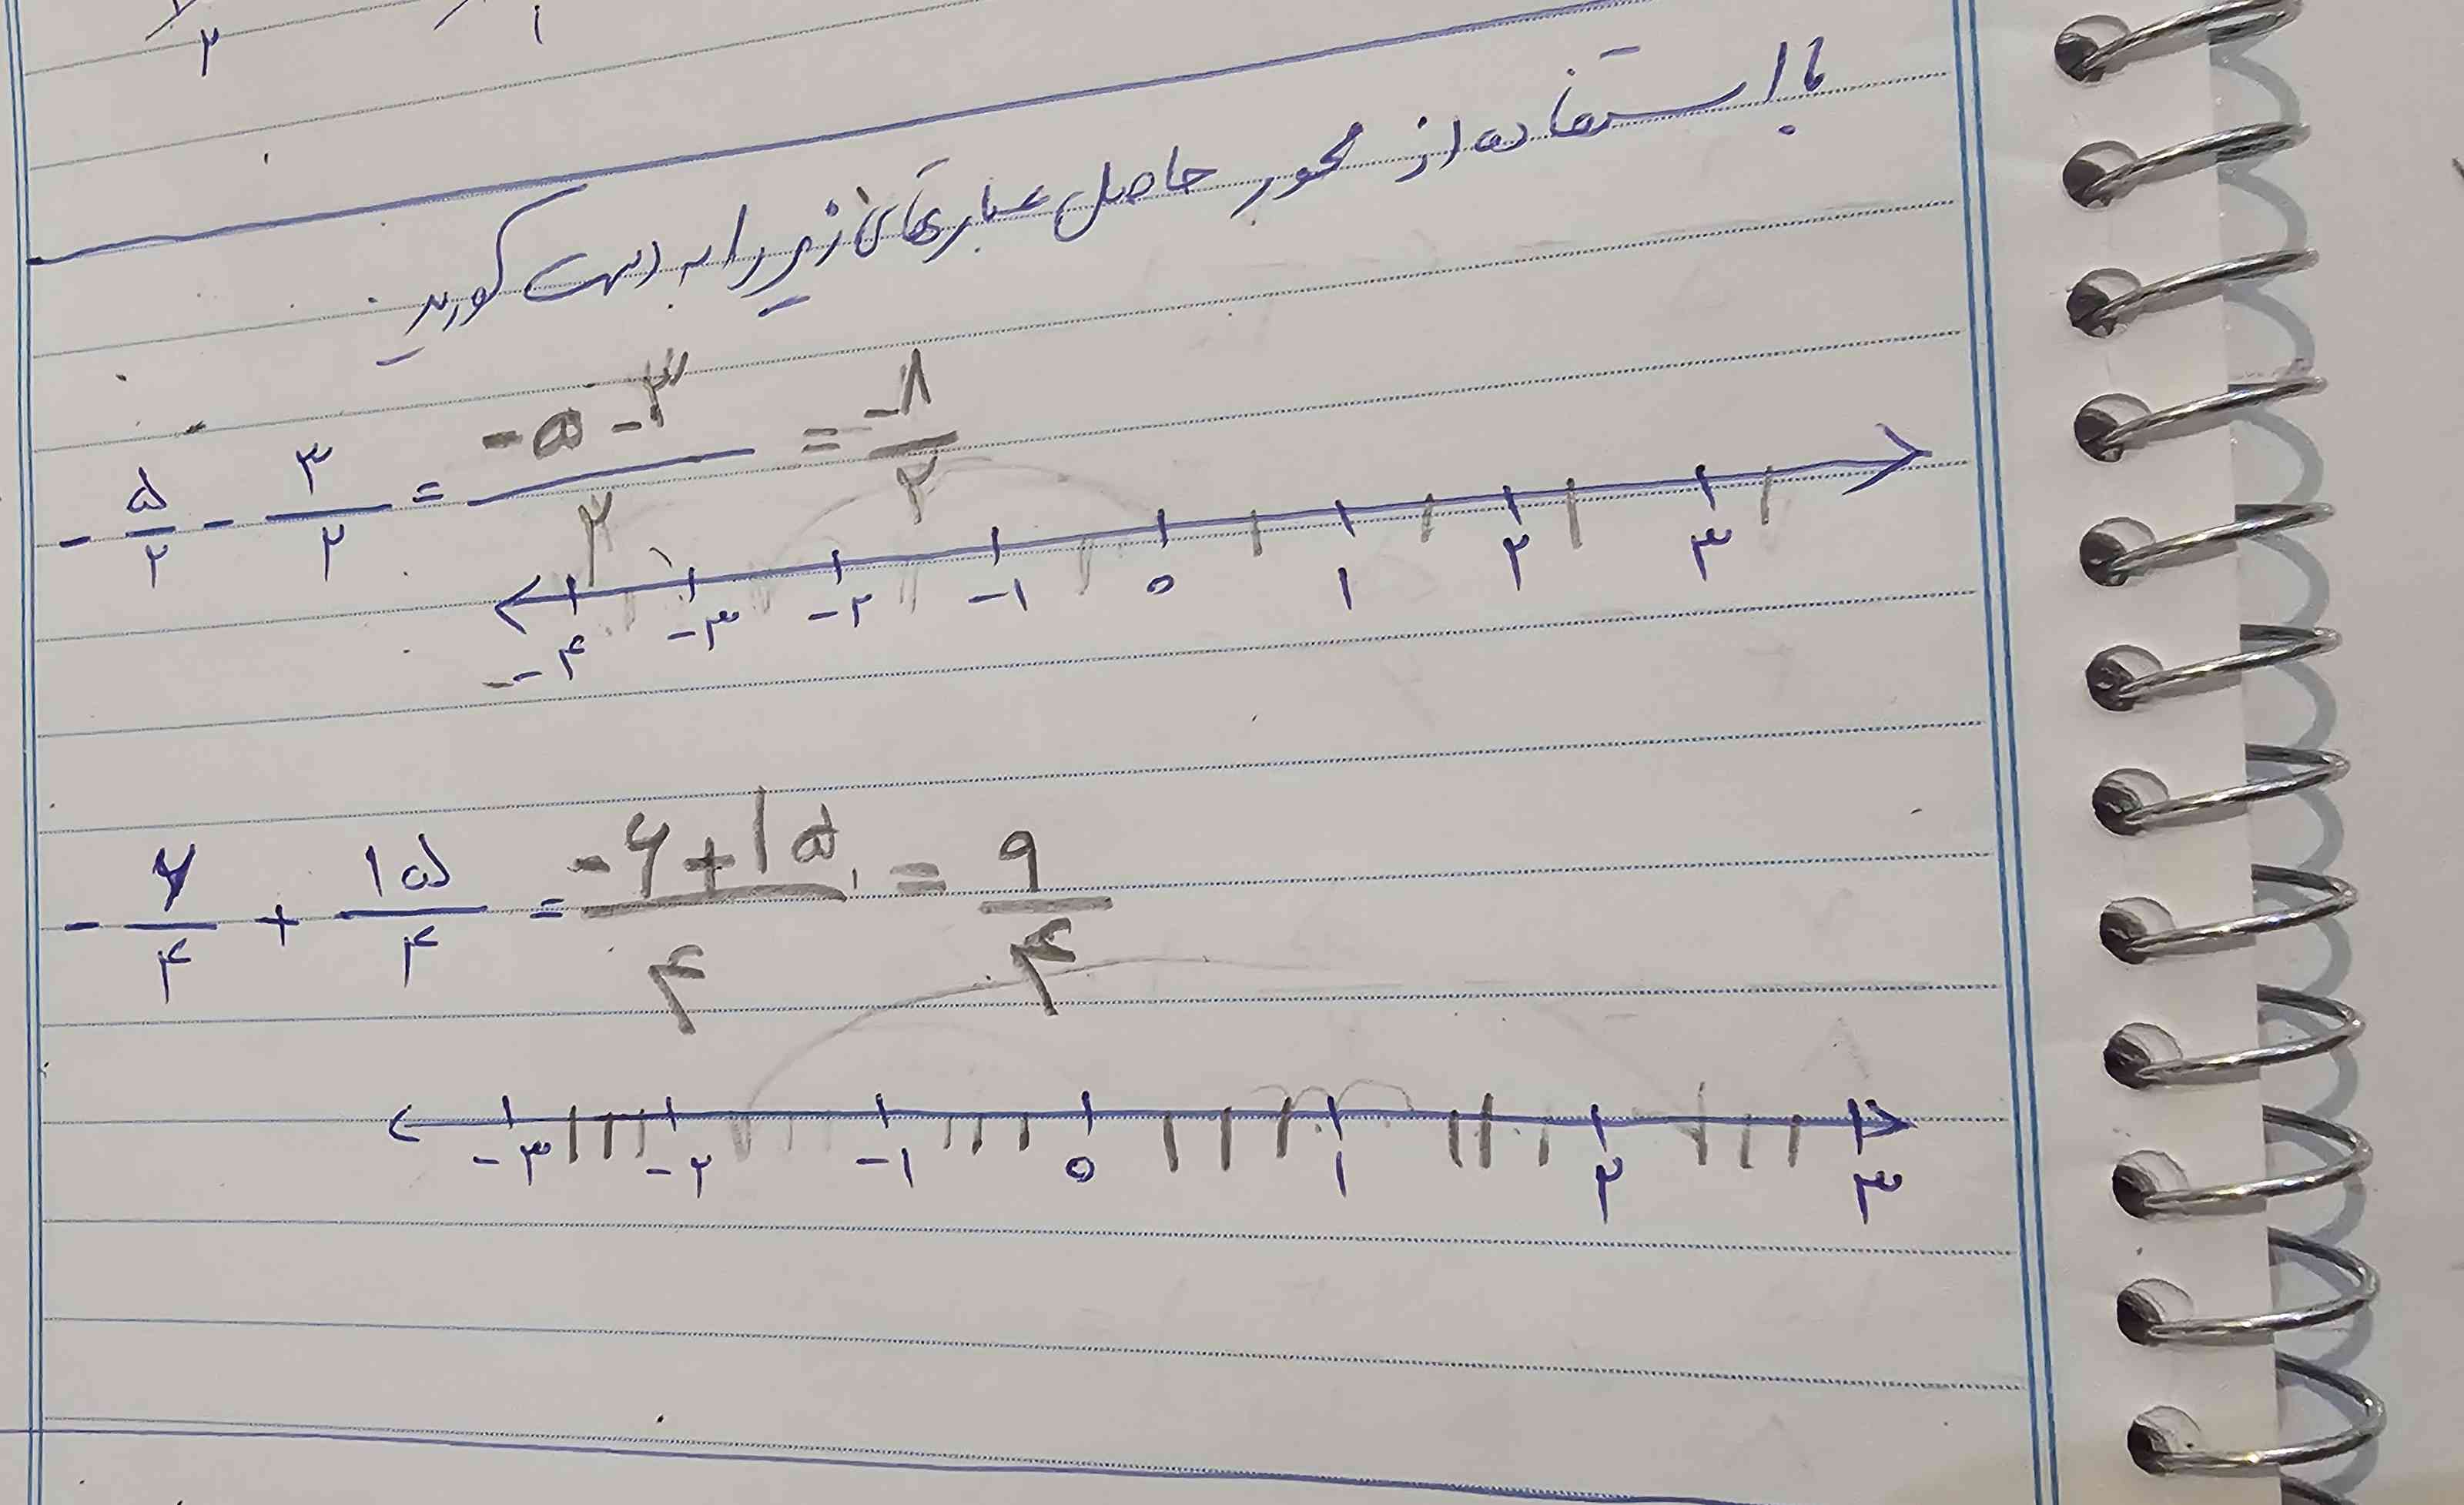 ۲ ۱
با استفاده از محور حاصل عبارتهای زیر را به دست آورید.
- ۵/۲ - ۳/۲ = -۵-۳/۲ = -۸/۲
-۴ -۳ -۲ -۱ ۰ ۱ ۲ ۳
- ۶/۴ + ۱۵/۴ = -۶+۱۵/۴ = ۹/۴
-۳ -۲ -۱ ۰ ۱ ۲ ۳